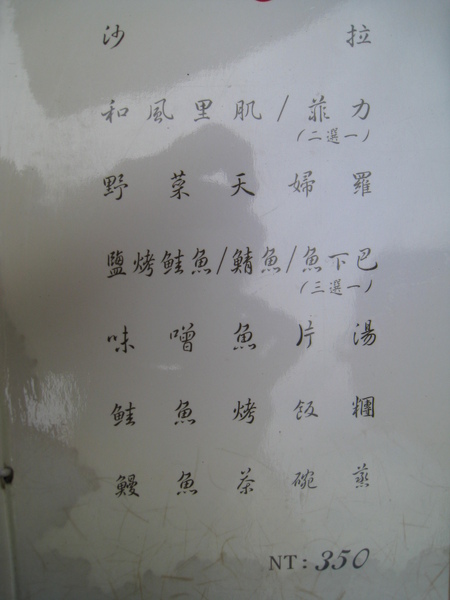 沙拉
和風里肌/菲力
(二選一)
野菜天婦羅
鹽烤鮭魚/鯖魚/魚下巴
(三選一)
味噌魚片湯
鮭魚烤飯糰
鰻魚茶碗蒸
NT:350